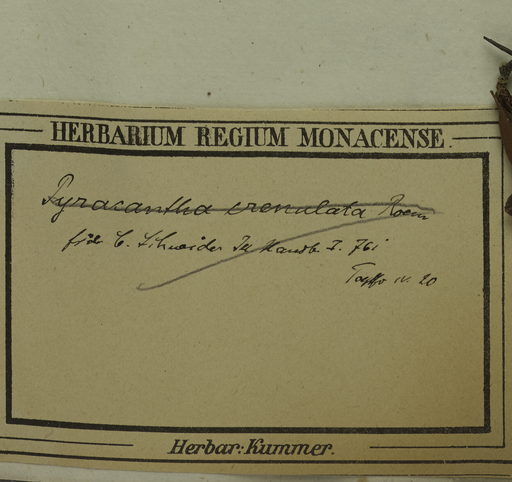 HERBARIUM REGIUM MONACENSE.
Pyracantha crenulata Roem
C. Schneider Ill Handb. I. 761
IV. 20
Herbar: Kummer.